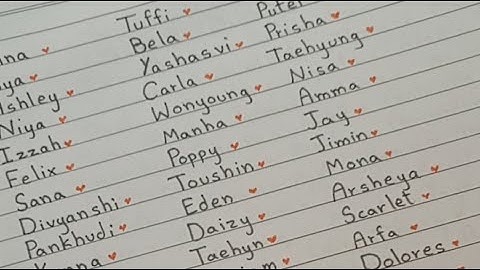 Ashley
Niya
Izzah
Felix
Sana
Divyanshi
Pankhudi
Tuffi
Bela
Yashasvi
Carla
Wonyoung
Manha
Poppy
Toushin
Eden
Daizy
Taehyn
Prisha
Taehyung
Nisa
Amma
Jay
Jimin
Mona
Arsheya
Scarlet
Arfa
Dolores